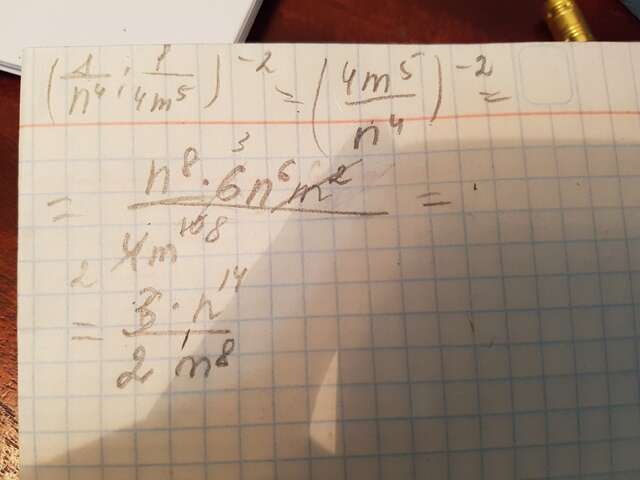 (1/n⁴ : 1/4m⁵)⁻² = (4m⁵/n⁴)⁻² =
= n⁸ · 6 3 n⁶ m² / 2 4m¹⁰ 8 =
= 3 · n¹⁴ / 2 m⁸